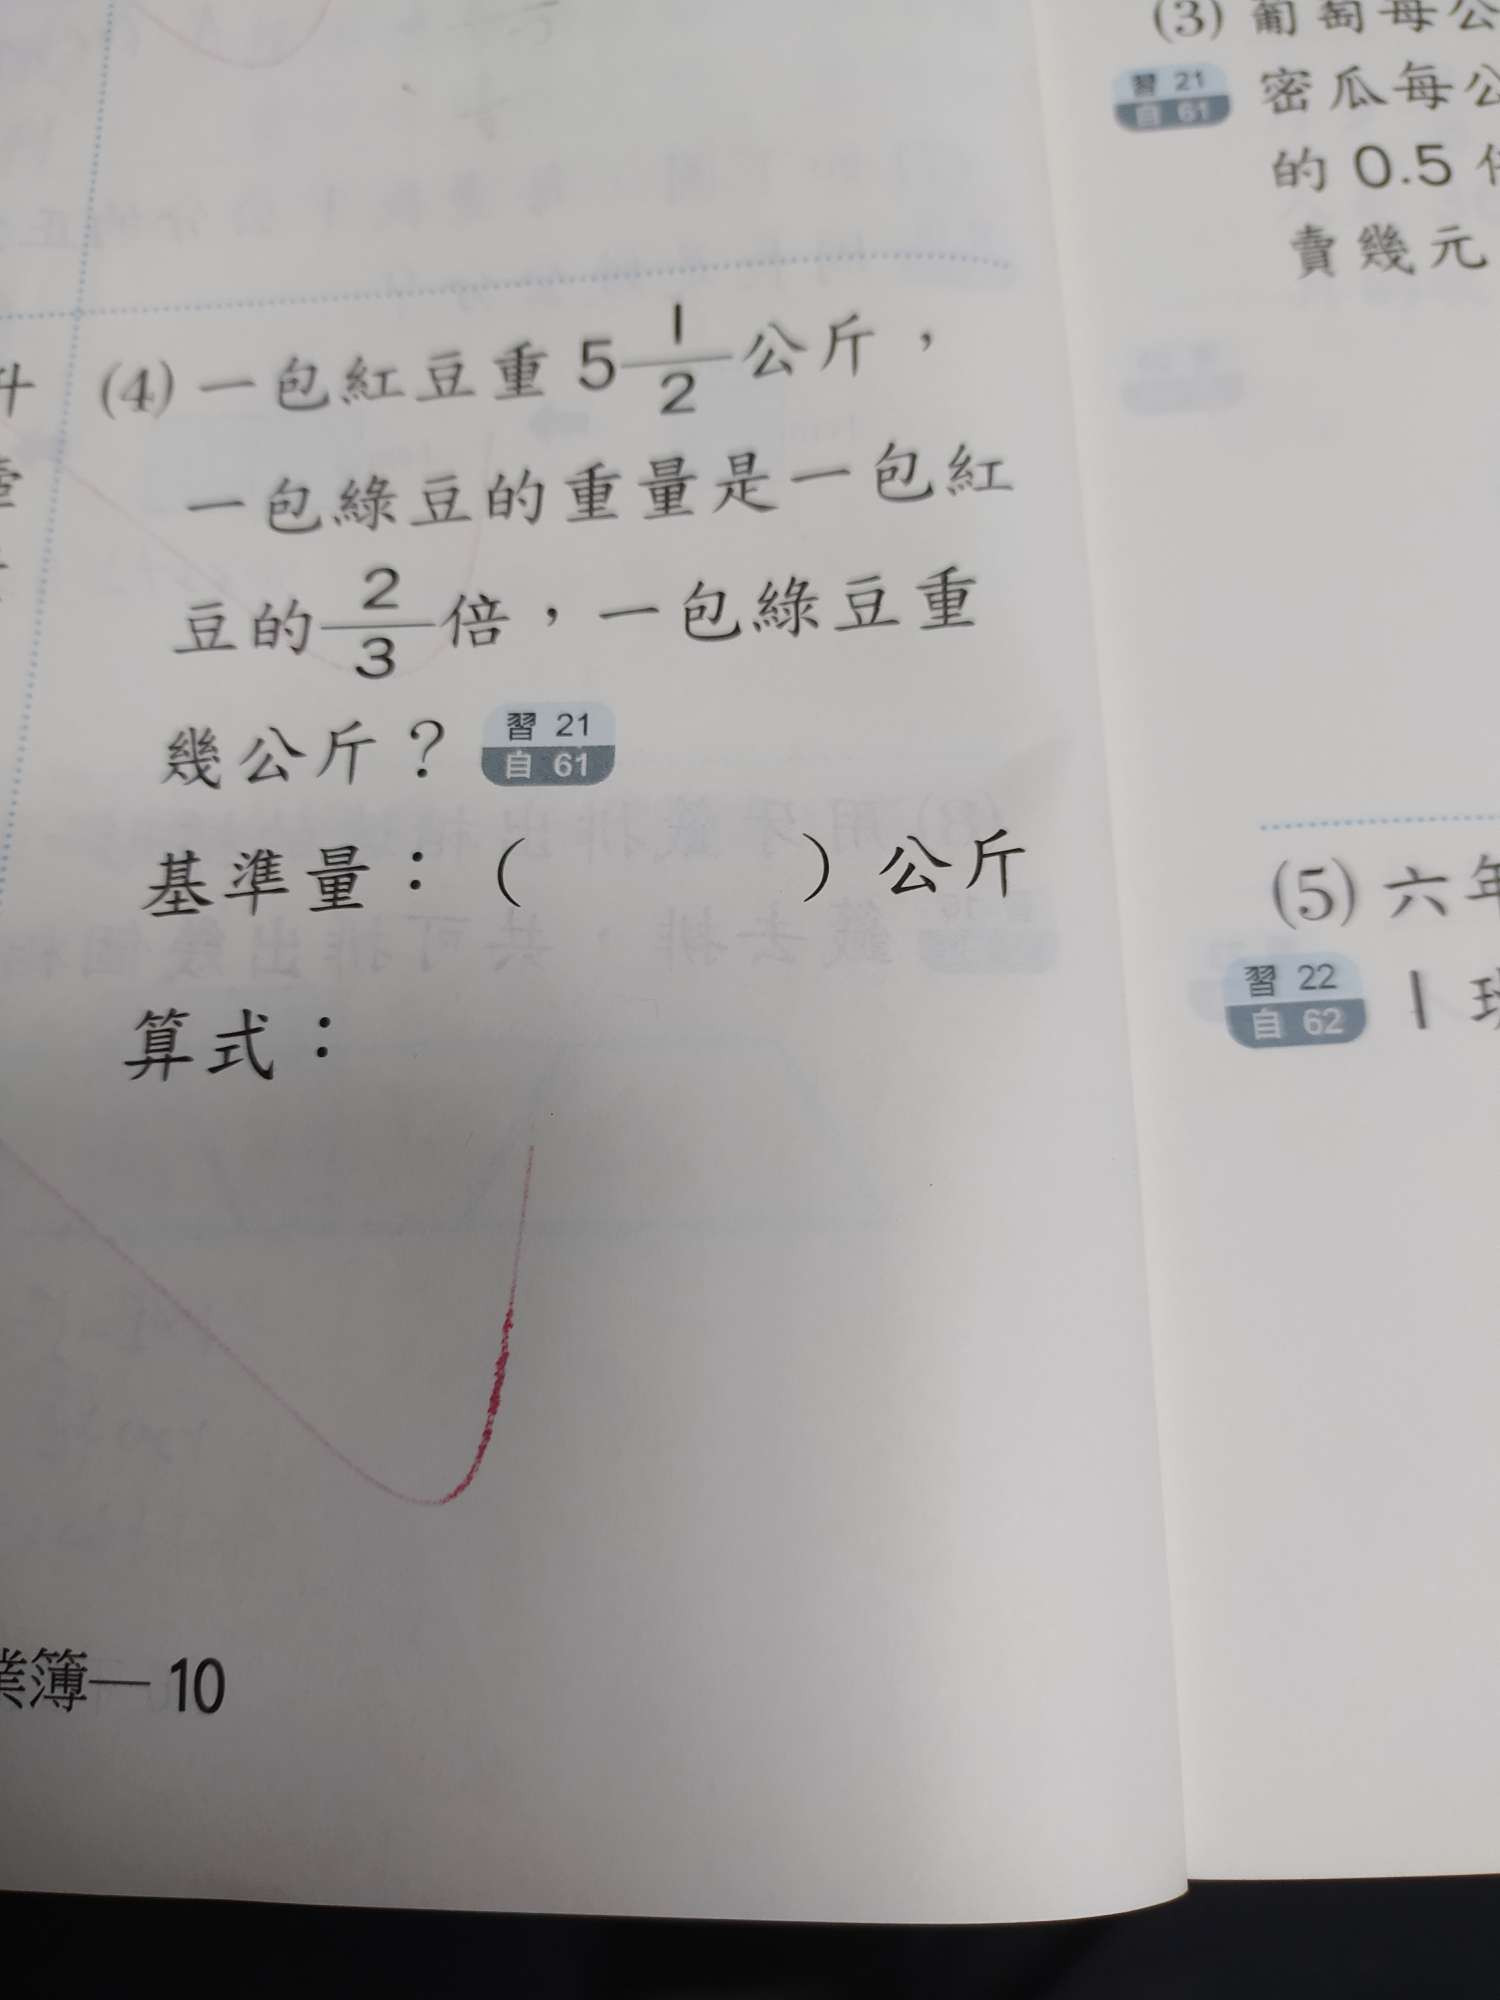 (4) 一包紅豆重 5 1/2 公斤，
一包綠豆的重量是一包紅
豆的 2/3 倍，一包綠豆重
幾公斤？ 習 21
自 61
基準量：（ ）公斤
算式：
業簿— 10
(3) 葡萄每公
習 21
自 61
密瓜每公
的 0.5
賣幾元
(5) 六年
習 22
自 62
1 班